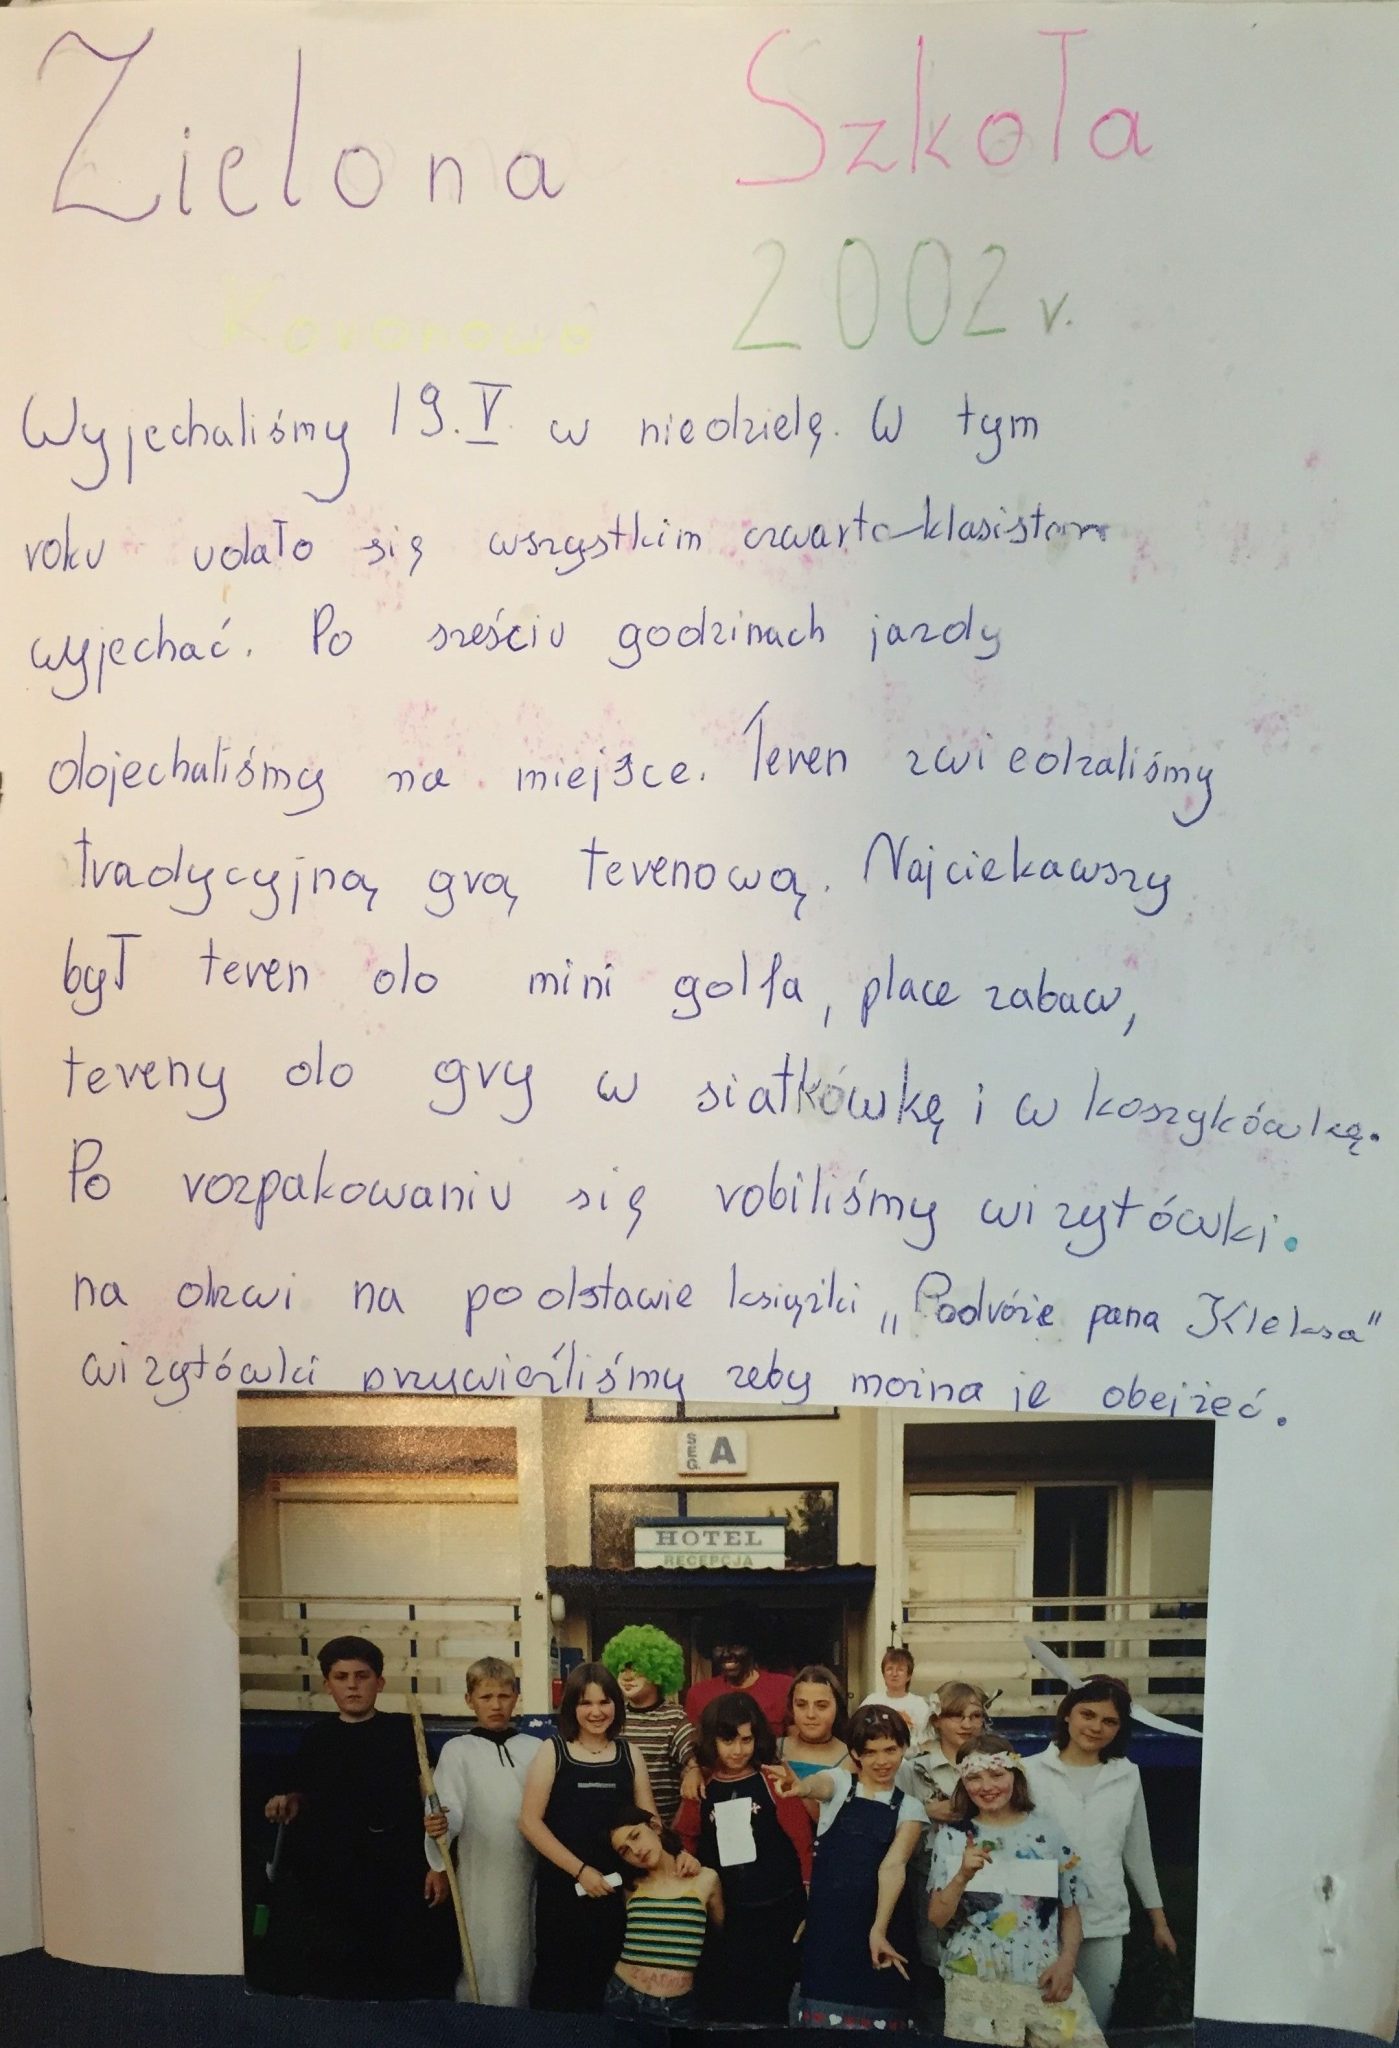 Zielona Szkoła
Koronowo 2002 r.
Wyjechaliśmy 19.V. w niedzielę. W tym
roku udało się wszystkim czwarto-klasistom
wyjechać. Po sześciu godzinach jazdy
dojechaliśmy na miejsce. Teren zwiedzaliśmy
tradycyjną grą terenową. Najciekawszy
był teren do mini golfa, place zabaw,
tereny do gry w siatkówkę i w koszykówkę.
Po rozpakowaniu się robiliśmy wizytówki.
na dzwi na podstawie książki „Podróże pana Kleksa"
wizytówki przywieźliśmy zeby można je obejżeć.
SEG. A
HOTEL
RECEPCJA